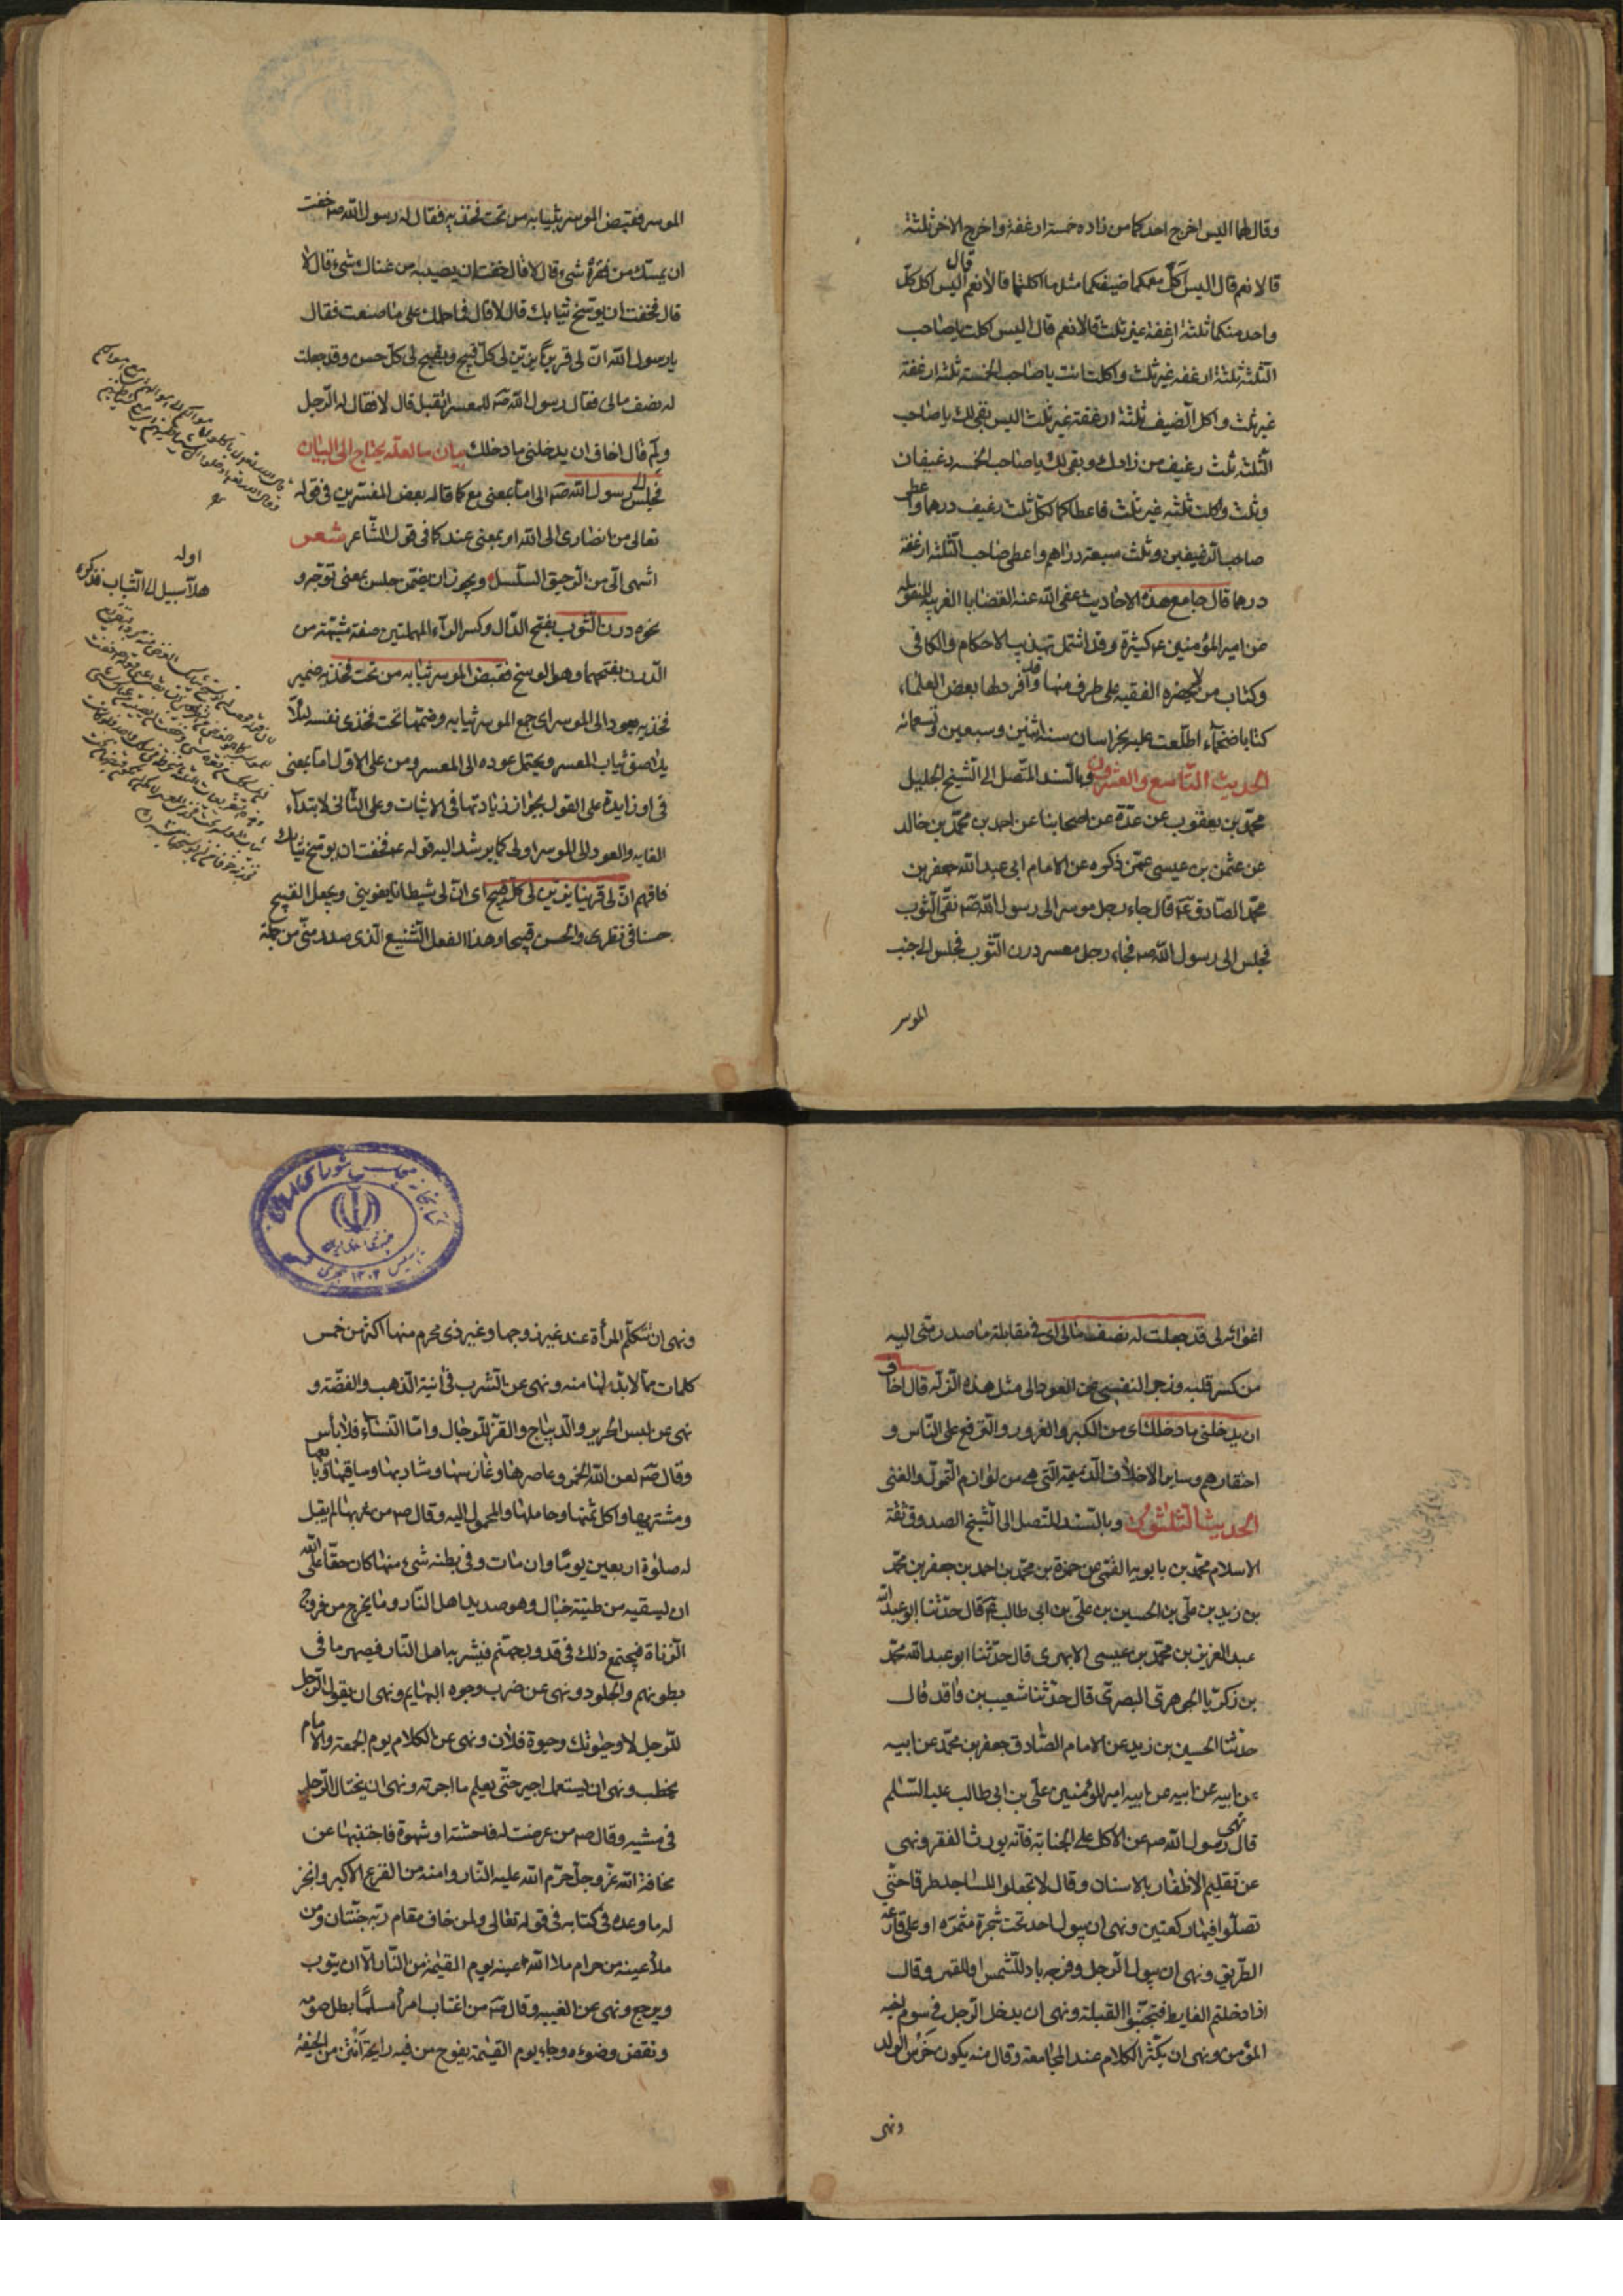 وقال لهما اليس اخرج احدكما من زاده خمسة ارغفة واخرج الاخر ثلثة
قالا نعم قال اليس اكل معكما ضيفكما مثل ما اكلتما قالا نعم قال اليس اكل كل
واحد منكما ثلثة ارغفة غير ثلث قالا نعم قال اليس اكلت يا صاحب
الثلثة ثلثة ارغفة غير ثلث واكلت انت يا صاحب الخمسة ثلثة ارغفة
غير ثلث واكل الضيف ثلثة ارغفة غير ثلث اليس بقى لك يا صاحب
الثلثه ثلث رغيف من زادك وبقى لك يا صاحب الخمسه رغيفان
وثلث واكلت ثلثه غير ثلث فاعطاكما لكل ثلث رغيف درهما واعطى
صاحب الرغيفين وثلث سبعة دراهم واعطى صاحب الثلثة ارغفة
درهما قال جامع هذه الاحاديث عفى الله عنه القضايا الغريبه المنقوله
عن امير المؤمنين ع كثيرة وقد اشتمل تهذيب الاحكام والكافى
وكتاب من لا يحضره الفقيه على طرف منها وقد افرد لها بعض العلماء
كتابا ضخما اطلعت عليه بخراسان سنة اثنين وسبعين وتسعمائه
الحديث التاسع والعشرون وبالسند المتصل الى الشيخ الجليل
محمد بن يعقوب عن عدة عن اصحابنا عن احمد بن محمد بن خالد
عن عثمن بن عيسى عمن ذكره عن الامام ابى عبد الله جعفر بن
محمد الصادق ع قال جاء رجل موسر الى رسول الله ص نقى الثوب
فجلس الى رسول الله ص فجاء رجل معسر درن الثوب فجلس الى جنب
الموسر
الموسر فقبض الموسر ثيابه من تحت فخذيه فقال له رسول الله ص اخفت
ان يمسك من فقره شىء قال لا قال خفت ان يصيبه من غناك شىء قال لا
قال فخفت ان يوسخ ثيابك قال لا قال فما حملك على ما صنعت فقال
يا رسول الله ان لى قرينا يزين لى كل قبيح ويقبح لى كل حسن وقد جعلت
له نصف مالى فقال رسول الله ص للمعسر اتقبل قال لا فقال له الرجل
ولم قال اخاف ان يدخلنى ما دخلك بيان ما لعله يحتاج الى البيان
فجلس الى رسول الله ص الى اما بمعنى مع كما قاله بعض المفسرين فى قوله
تعالى من انصارى الى الله او بمعنى عند كما فى قول الشاعر شعر
اشهى الى من الرحيق السلسل ويجوز ان يضمن جلس بمعنى توجه و
نحوه درن الثوب بفتح الدال وكسر الراء المهملتين صفة مشبهة من
الدرن بفتحهما وهو الوسخ فقبض الموسر ثيابه من تحت فخذيه ضمير
فخذيه يعود الى الموسر اى جمع الموسر ثيابه وضمها تحت فخذى نفسه لئلا
يلاصق ثياب المعسر ويحتمل عوده الى المعسر ومن على الاول اما بمعنى
فى او زايدة على القول بجواز زيادتها فى الاثبات وعلى الثانى لابتداء
الغايه والعود الى الموسر اولى كما يرشد اليه قوله ع فخفت ان يوسخ ثيابك
فافهم ان لى قرينا يزين لى كل قبيح اى ان لى شيطانا يغوينى ويجعل القبيح
حسنا فى نظرى والحسن قبيحا وهذا الفعل الشنيع الذى صدر منى من جملة
اوله
هلا سبيل الى الشباب فذكره
اغوائه لى قد جعلت له نصف مالى اى فى مقابلة ما صدر منى اليه
من كسر قلبه وزجر النفسى عن العود الى مثل هذه الزله قال اخاف
ان يدخلنى ما دخلك اى من الكبر والغرور والترفع على الناس و
احتقارهم وساير الاخلاق الذميمة التى هى من لوازم التمول والغنى
الحديث الثلثون وبالسند المتصل الى الشيخ الصدوق ثقة
الاسلام محمد بن بابويه القمى عن حمزة بن محمد بن احمد بن جعفر بن محمد
بن زيد بن على بن الحسين بن على بن ابى طالب ع قال حدثنا ابو عبد الله
عبد العزيز بن محمد بن عيسى الابهرى قال حدثنا ابو عبد الله محمد
بن زكريا الجوهرى البصرى قال حدثنا شعيب بن واقد قال
حدثنا الحسين بن زيد عن الامام الصادق جعفر بن محمد عن ابيه
عن ابيه عن ابيه عن ابيه امير المؤمنين على بن ابى طالب عليه السلم
قال نهى رسول الله ص عن الاكل على الجنابة فانه يورث الفقر ونهى
عن تقليم الاظفار بالاسنان وقال لا تجعلوا المساجد طرقا حتى
تصلوا فيها ركعتين ونهى ان يبول احد تحت شجرة مثمره او على قارعة
الطريق ونهى ان يبول الرجل وفرجه باد للشمس او للقمر وقال
اذا دخلتم الغايط فتجنبوا القبلة ونهى ان يدخل الرجل فى سوم اخيه
المؤمن ونهى ان يكثر الكلام عند المجامعة وقال منه يكون خرس الولد
ونهى
ونهى ان تتكلم المرأة عند غير زوجها وغير ذى محرم منها اكثر من خمس
كلمات مما لا بد لها منه ونهى عن الشرب فى آنية الذهب والفضة و
نهى عن لبس الحرير والديباج والقز للرجال واما النساء فلا بأس
وقال ص لعن الله الخمر وعاصرها وغارسها وشاربها وساقيها وبايعها
ومشتريها واكل ثمنها وحاملها والمحمول اليه وقال ص من شربها لم يقبل
له صلوة اربعين يوما وان مات وفى بطنه شىء منها كان حقا على الله
ان يسقيه من طينة خبال وهو صديد اهل النار وما يخرج من فروج
الزناة فيجتمع ذلك فى قدور جهنم فيشربه اهل النار فيصهر ما فى
بطونهم والجلود ونهى عن ضرب وجوه البهايم ونهى ان يقول الرجل
للرجل لا وحيوتك وحيوة فلان ونهى عن الكلام يوم الجمعة والامام
يخطب ونهى ان يستعمل اجير حتى يعلم ما اجرته ونهى ان يختال الرجل
فى مشيه وقال ص من عرضت له فاحشة او شهوة فاجتنبها عن
مخافة الله عز وجل حرم الله عليه النار وامنه من الفزع الاكبر وانجز
له ما وعده فى كتابه فى قوله تعالى ولمن خاف مقام ربه جنتان ومن
ملأ عينه من حرام ملا الله عينه يوم القيمة من النار الا ان يتوب
ويرجع ونهى عن الغيبه وقال ص من اغتاب امرأ مسلما بطل صومه
ونقض وضوءه وجاء يوم القيمة يفوح من فيه رايحة انتن من الجيفة